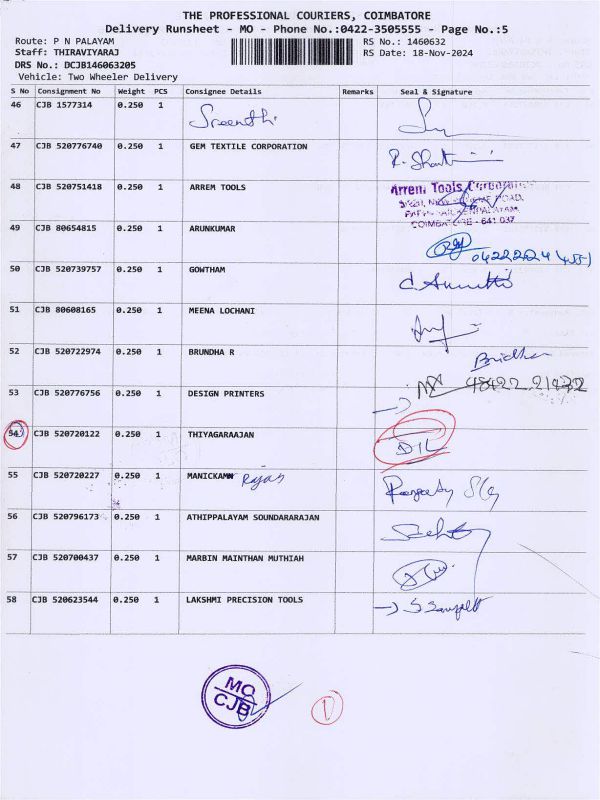 THE PROFESSIONAL COURIERS, COIMBATORE
Delivery Runsheet - MO - Phone No.:0422-3505555 - Page No.:5
Route: P N PALAYAM
RS No.: 1460632
Staff: THIRAVIYARAJ
RS Date: 18-Nov-2024
DRS No.: DCJB146063205
Vehicle: Two Wheeler Delivery
S No Consignment No Weight PCS Consignee Details Remarks Seal & Signature
46 CJB 1577314 0.250 1
47 CJB 520776740 0.250 1 GEM TEXTILE CORPORATION
48 CJB 520751418 0.250 1 ARREM TOOLS Arrem Tools
COIMBATORE - 641 037
49 CJB 80654815 0.250 1 ARUNKUMAR
50 CJB 520739757 0.250 1 GOWTHAM
51 CJB 80608165 0.250 1 MEENA LOCHANI
52 CJB 520722974 0.250 1 BRUNDHA R
53 CJB 520776756 0.250 1 DESIGN PRINTERS
54 CJB 520720122 0.250 1 THIYAGARAAJAN
55 CJB 520720227 0.250 1
56 CJB 520796173 0.250 1 ATHIPPALAYAM SOUNDARARAJAN
57 CJB 520700437 0.250 1 MARBIN MAINTHAN MUTHIAH
58 CJB 520623544 0.250 1 LAKSHMI PRECISION TOOLS
MO
CJB
1